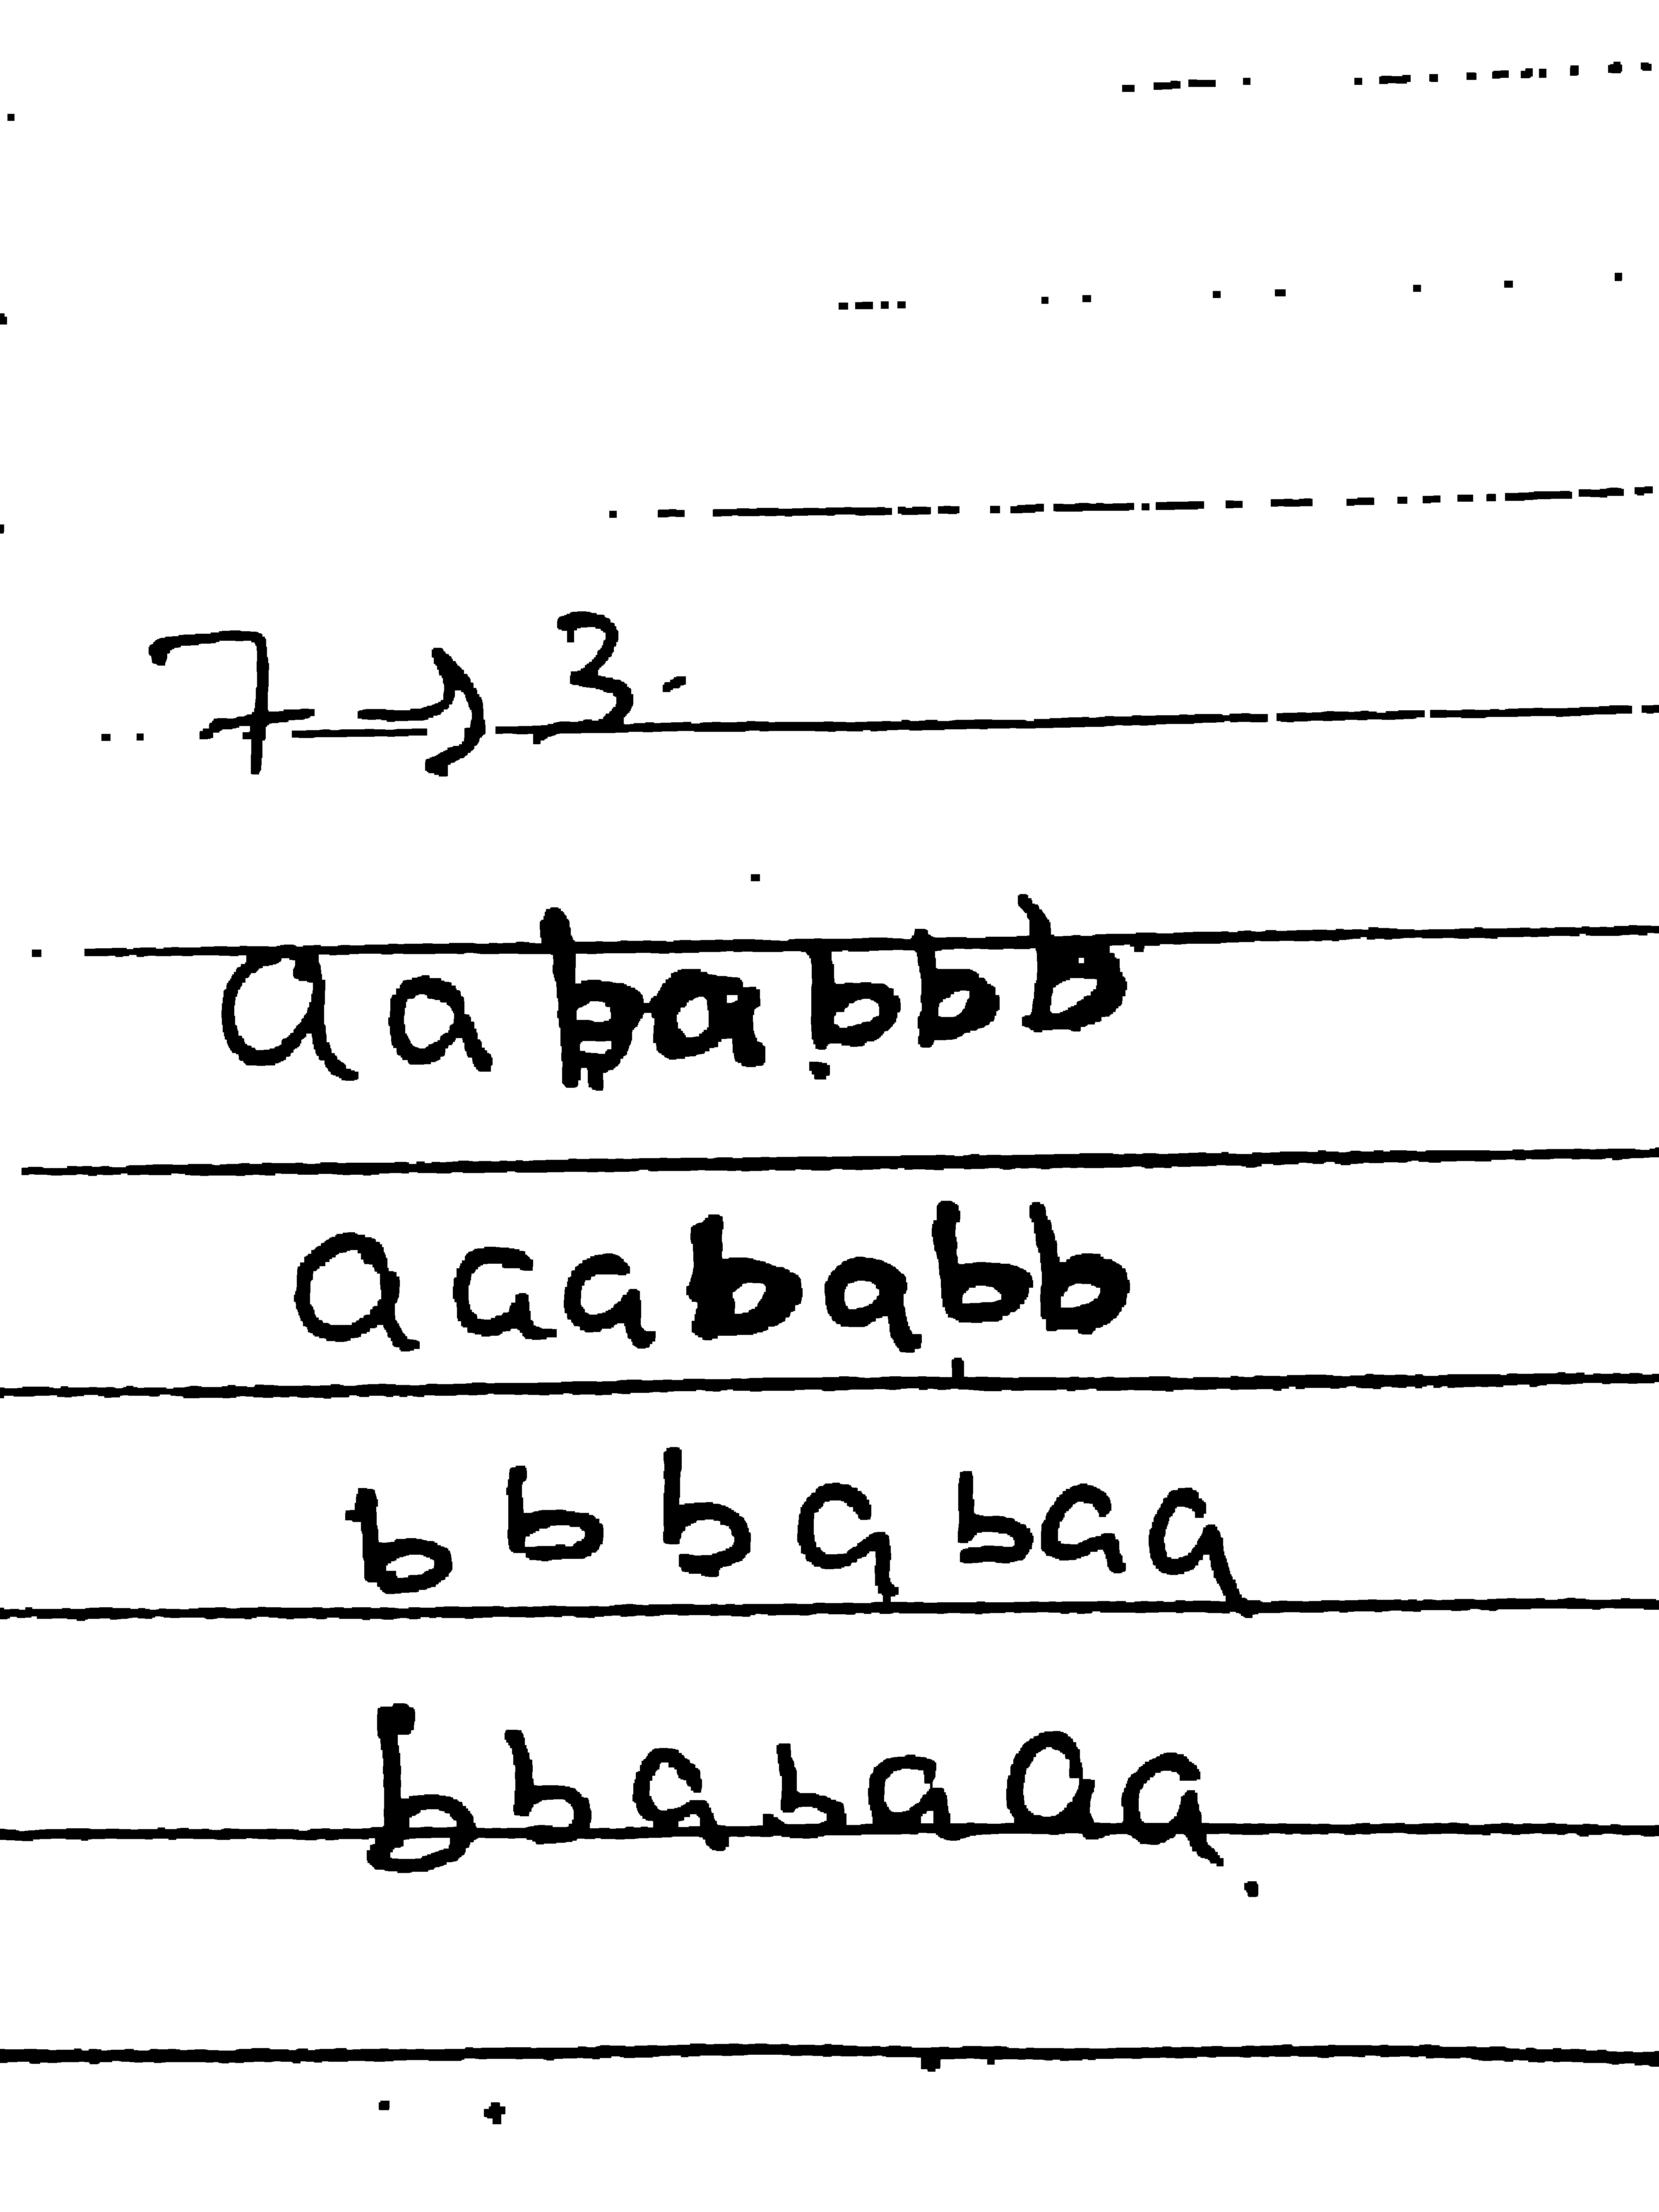 7 → 3.
a a b a b b b
a a a b a b b
b b b a b a a
b b a b a a a